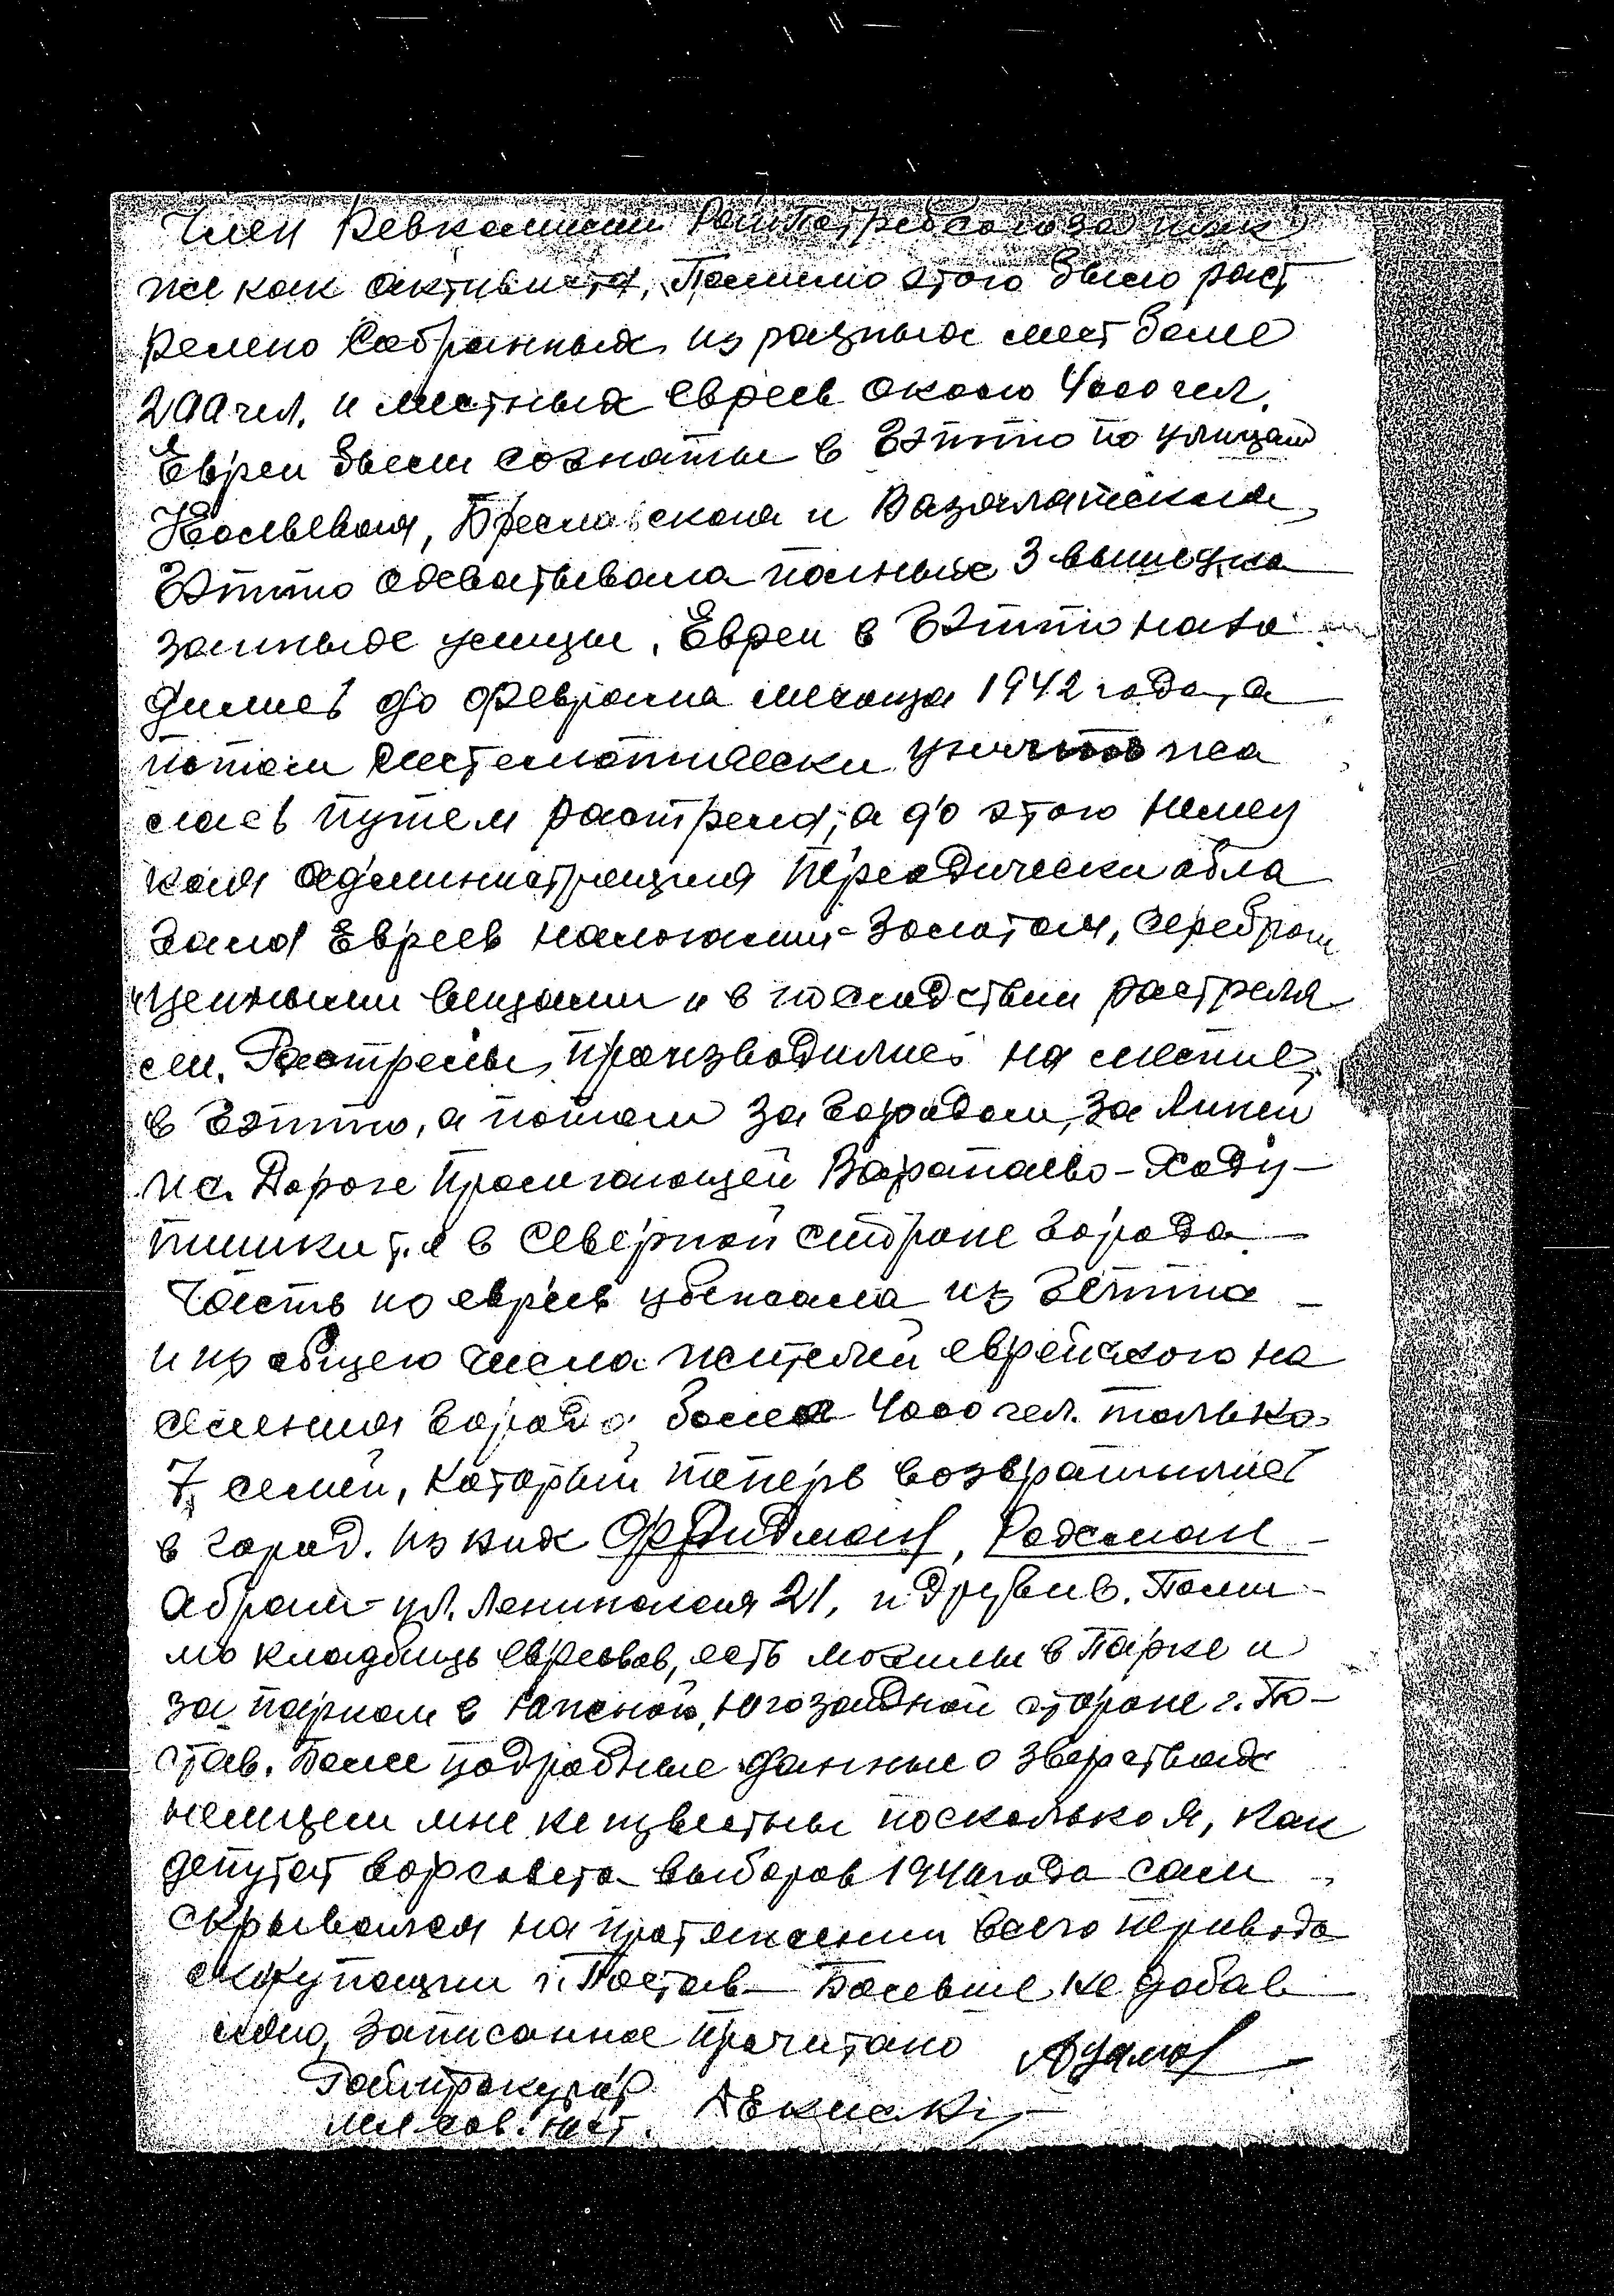 Член Ревкомиссии Райпотребсоюза так
же как активиста, Помимо этого было раст
релено Собранных из разных мест более
200 чел. и местных евреев около 4000 чел.
Евреи были согнаты в Гэтто по улицам
Браславская и
Гэтто охватывала полные 3 вышеука
занные улицы. Евреи в Гэтто нахо
дились до февраля месяца 1942 года, а
потом систематически уничтожа
лась путем растрела, а до этого немец
кая администрация периодически обла
гала Евреев налогами - Золотом, серебром
ценными вещами и в последствии растреля
ли. Растрелы производились на месте,
в Гэтто, а потом за городом, за Линей
на Дороге Пролегающей Варапаево - Ходу-
тишки т.е в Северной стороне города
Часть из евреев убежала из Гетта
и из общего числа жителей еврейского на
селения города более 4000 чел. только
7 семей, который теперь возвратились
в город. Из них Фридман, Рахман
Абрам ул. Ленинская 21, и другие. Поми
мо кладбищь евреевов, есть могилы в Парке и
за парком в южной, югозападной стороне г. По-
став. Более подробные данные о зверствах
немцем мне не известны поскольку я, как
депутат горсовета выборов 1940 года сам
скрывался на протяжении всего периода
оккупации г. Постав - Больше не добав
ляю, Записанное прочитано
Райпрокурор
мл. сов. юст.